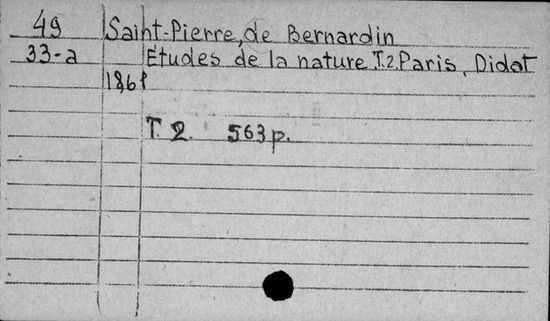 49 Saint-Pierre, de Bernardin
33-a Etudes de la nature. T.2. Paris, Didot
T. 2. 563 p.